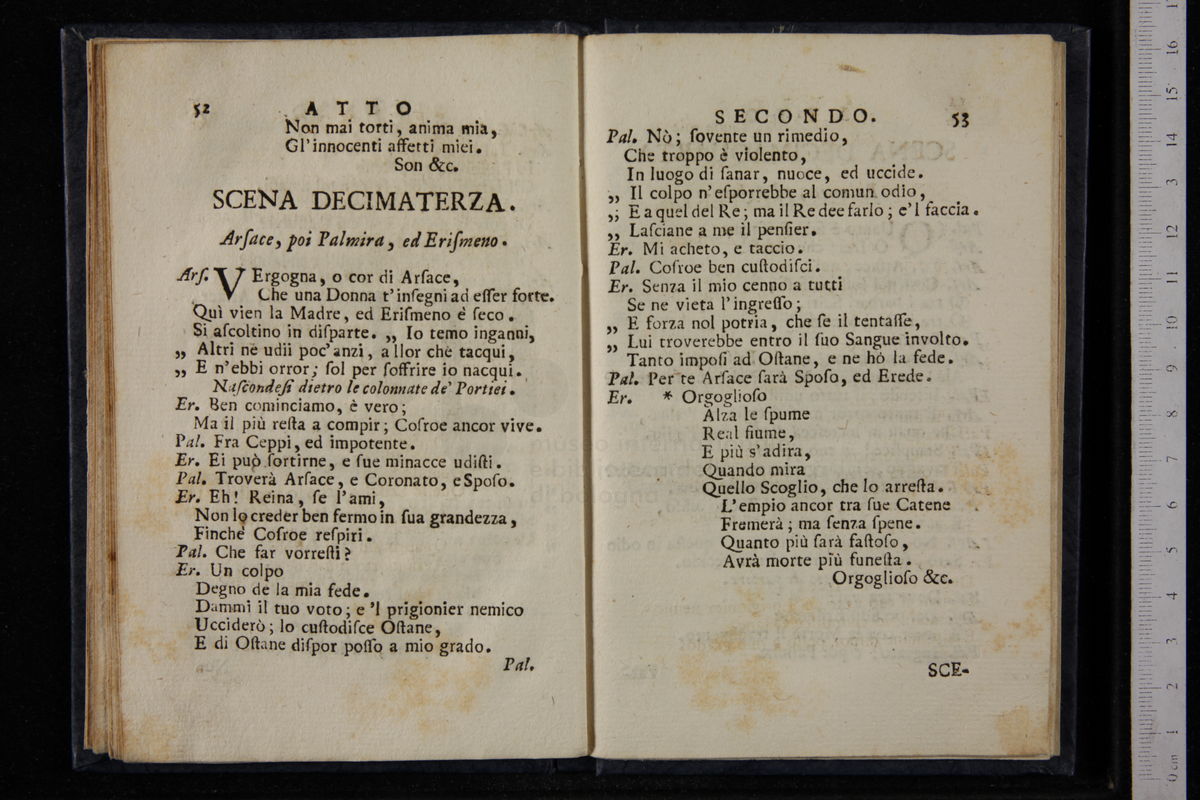 52 ATTO
Non mai torti, anima mia,
Gl'innocenti affetti miei.
Son &c.
SCENA DECIMATERZA.
Arſace, poi Palmira, ed Eriſmeno.
Arſ. VErgogna, o cor di Arſace,
Che una Donna t'inſegni ad eſſer forte.
Quì vien la Madre, ed Eriſmeno è ſeco.
Si aſcoltino in diſparte. „ Io temo inganni,
„ Altri ne udii poc'anzi, allor che tacqui,
„ E n'ebbi orror; ſol per ſoffrire io nacqui.
Naſcondeſi dietro le colonnate de' Portici.
Er. Ben cominciamo, è vero;
Ma il più reſta a compir; Coſroe ancor vive.
Pal. Fra Ceppi, ed impotente.
Er. Ei può ſortirne, e ſue minacce udiſti.
Pal. Troverà Arſace, e Coronato, e Spoſo.
Er. Eh! Reina, ſe l'ami,
Non lo creder ben fermo in ſua grandezza,
Finchè Coſroe reſpiri.
Pal. Che far vorreſti?
Er. Un colpo
Degno de la mia fede.
Dammi il tuo voto; e 'l prigionier nemico
Ucciderò; lo cuſtodiſce Oſtane,
E di Oſtane diſpor poſſo a mio grado.
Pal.
SECONDO. 53
Pal. Nò; ſovente un rimedio,
Che troppo è violento,
In luogo di ſanar, nuoce, ed uccide.
„ Il colpo n'eſporrebbe al comun odio,
„ E a quel del Re; ma il Re dee farlo; e'l faccia.
„ Laſciane a me il penſier.
Er. Mi acheto, e taccio.
Pal. Coſroe ben cuſtodiſci.
Er. Senza il mio cenno a tutti
Se ne vieta l'ingreſſo;
„ E forza nol potria, che ſe il tentaſſe,
„ Lui troverebbe entro il ſuo Sangue involto.
Tanto impoſi ad Oſtane, e ne hò la fede.
Pal. Per te Arſace ſarà Spoſo, ed Erede.
Er. * Orgoglioſo
Alza le ſpume
Real fiume,
E più s'adira,
Quando mira
Quello Scoglio, che lo arreſta.
L'empio ancor tra ſue Catene
Fremerà; ma ſenza ſpene.
Quanto più ſarà faſtoſo,
Avrà morte più funeſta.
Orgoglioſo &c.
SCE-